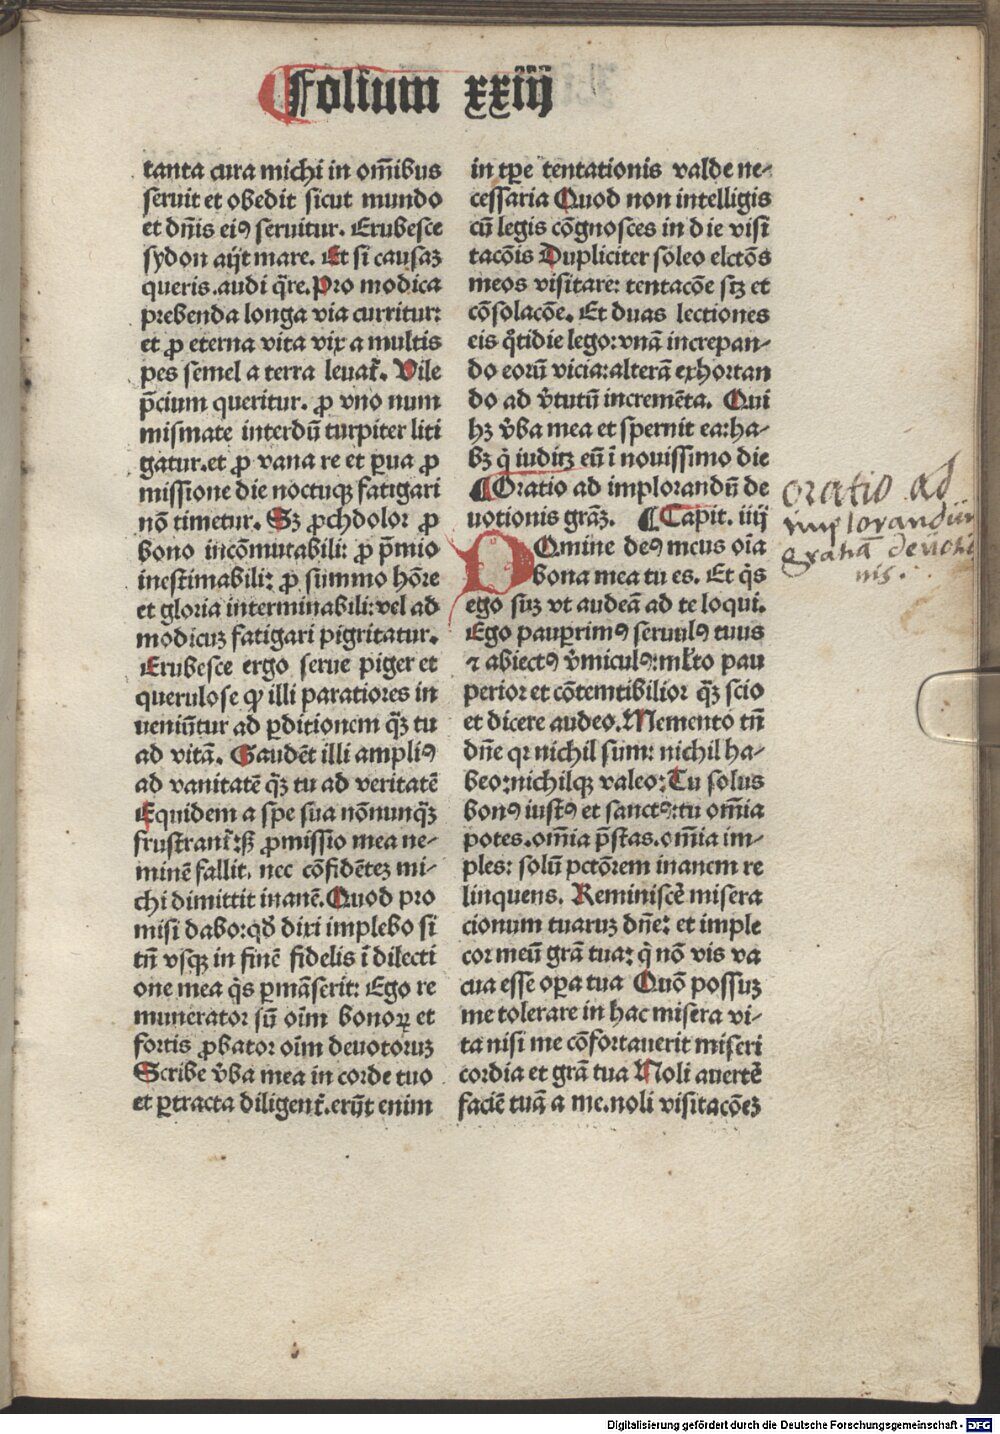 Folium xxiiij
tanta cura michi in om̄ibus
seruit et obedit sicut mundo
et dn̄is eiꝰ seruitur. Erubesce
sydon aijt mare. Et si causaꝫ
queris.audi q̄re. Pro modica
prebenda longa via curritur:
et ꝓ eterna vita vix a multis
pes semel a terra leuat᷑. Vile
p̄cium queritur. ꝓ vno num
mismate interdū turpiter liti
gatur.et ꝓ vana re et ꝑua ꝓ
missione die noctuqꝫ fatigari
nō timetur. Sꝫ ꝓchdolor ꝓ
bono incōmutabili: ꝓ p̄mio
inestimabili: ꝓ summo hōre
et gloria interminabili: vel ad
modicuꝫ fatigari pigritatur.
Erubesce ergo serue piger et
querulose ꝙ illi paratiores in
ueniūtur ad ꝑditionem q̄ꝫ tu
ad vitā. Gaudēt illi ampliꝰ
ad vanitatē q̄ꝫ tu ad veritatē
Equidem a spe sua nōnunq̄ꝫ
frustrant᷑: sꝫ ꝓmissio mea ne-
minē fallit, nec cōfidēteꝫ mi-
chi dimittit inanē. Quod pro
misi dabo: qd̄ dixi implebo si
tn̄ vsqꝫ in finē fidelis ī dilecti
one mea q̇s ꝑmāserit: Ego re
munerator sū oīm bonoꝝ et
fortis ꝓbator oīm deuotoruꝫ
Scribe v̄ba mea in corde tuo
et ꝑtracta diligent᷑. erūt enim
in tꝑe tentationis valde ne-
cessaria Quod non intelligis
cū legis cōgnosces in die visi
tacōis Dupliciter soleo elctōs
meos visitare: tentacōe sꝫ et
cōsolacōe. Et duas lectiones
eis q̊tidie lego: vnā increpan-
do eorū vicia: alterā exhortan
do ad v̄tutū incremēta. Qui
hꝫ v̄ba mea et spernit ea: ha-
bꝫ q̇ iudicꝫ eū ī nouissimo die
¶Oratio ad implorandū de
uotionis grāꝫ. ¶Capit. iiij
Domine deꝰ meus oīa
bona mea tu es. Et q̇s
ego suꝫ vt audeā ad te loqui.
Ego pauꝑrimꝰ seruulꝰ tuus
⁊ abiectꝰ v̄miculꝰ: ml̄to pau
perior et cōtemtibilior q̄ꝫ scio
et dicere audeo. Memento tn̄
dn̄e qꝛ nichil sum: nichil ha-
beo: nichilqꝫ valeo: Tu solus
bonꝰ iustꝰ et sanctꝰ: tu om̄ia
potes. om̄ia p̄stas. om̄ia im-
ples: solū pctōrem inanem re
linquens. Reminiscē misera
cionum tuaruꝫ dn̄e: et imple
cor meū grā tua: q̇ nō vis va
cua esse oꝑa tua Quō possuꝫ
me tolerare in hac misera vi-
ta nisi me cōfortauerit miseri
cordia et grā tua Noli auertē
faciē tuā a me. noli visitacōeꝫ
oratio ad
implorandū
gratiā deuotio
nis.
Digitalisierung gefördert durch die Deutsche Forschungsgemeinschaft - DFG